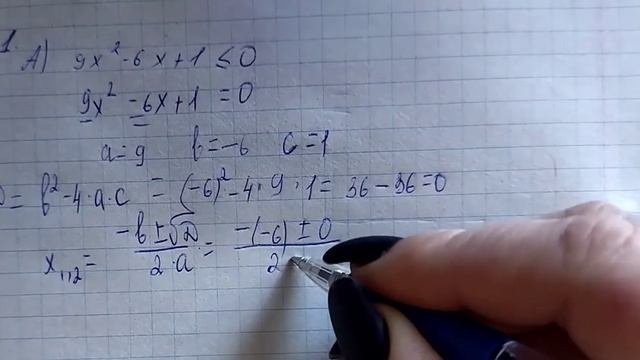 1.
А) 9x² - 6x + 1 ≤ 0
9x² - 6x + 1 = 0
a = 9 b = -6 c = 1
D = b² - 4·a·c = (-6)² - 4·9·1 = 36 - 36 = 0
x₁,₂ = (-b ± √D)/(2·a) = (-(-6) ± 0)/2